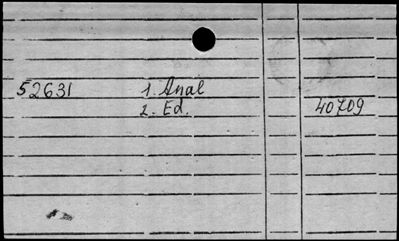 52631 1. Anal
2. Ed. 40709